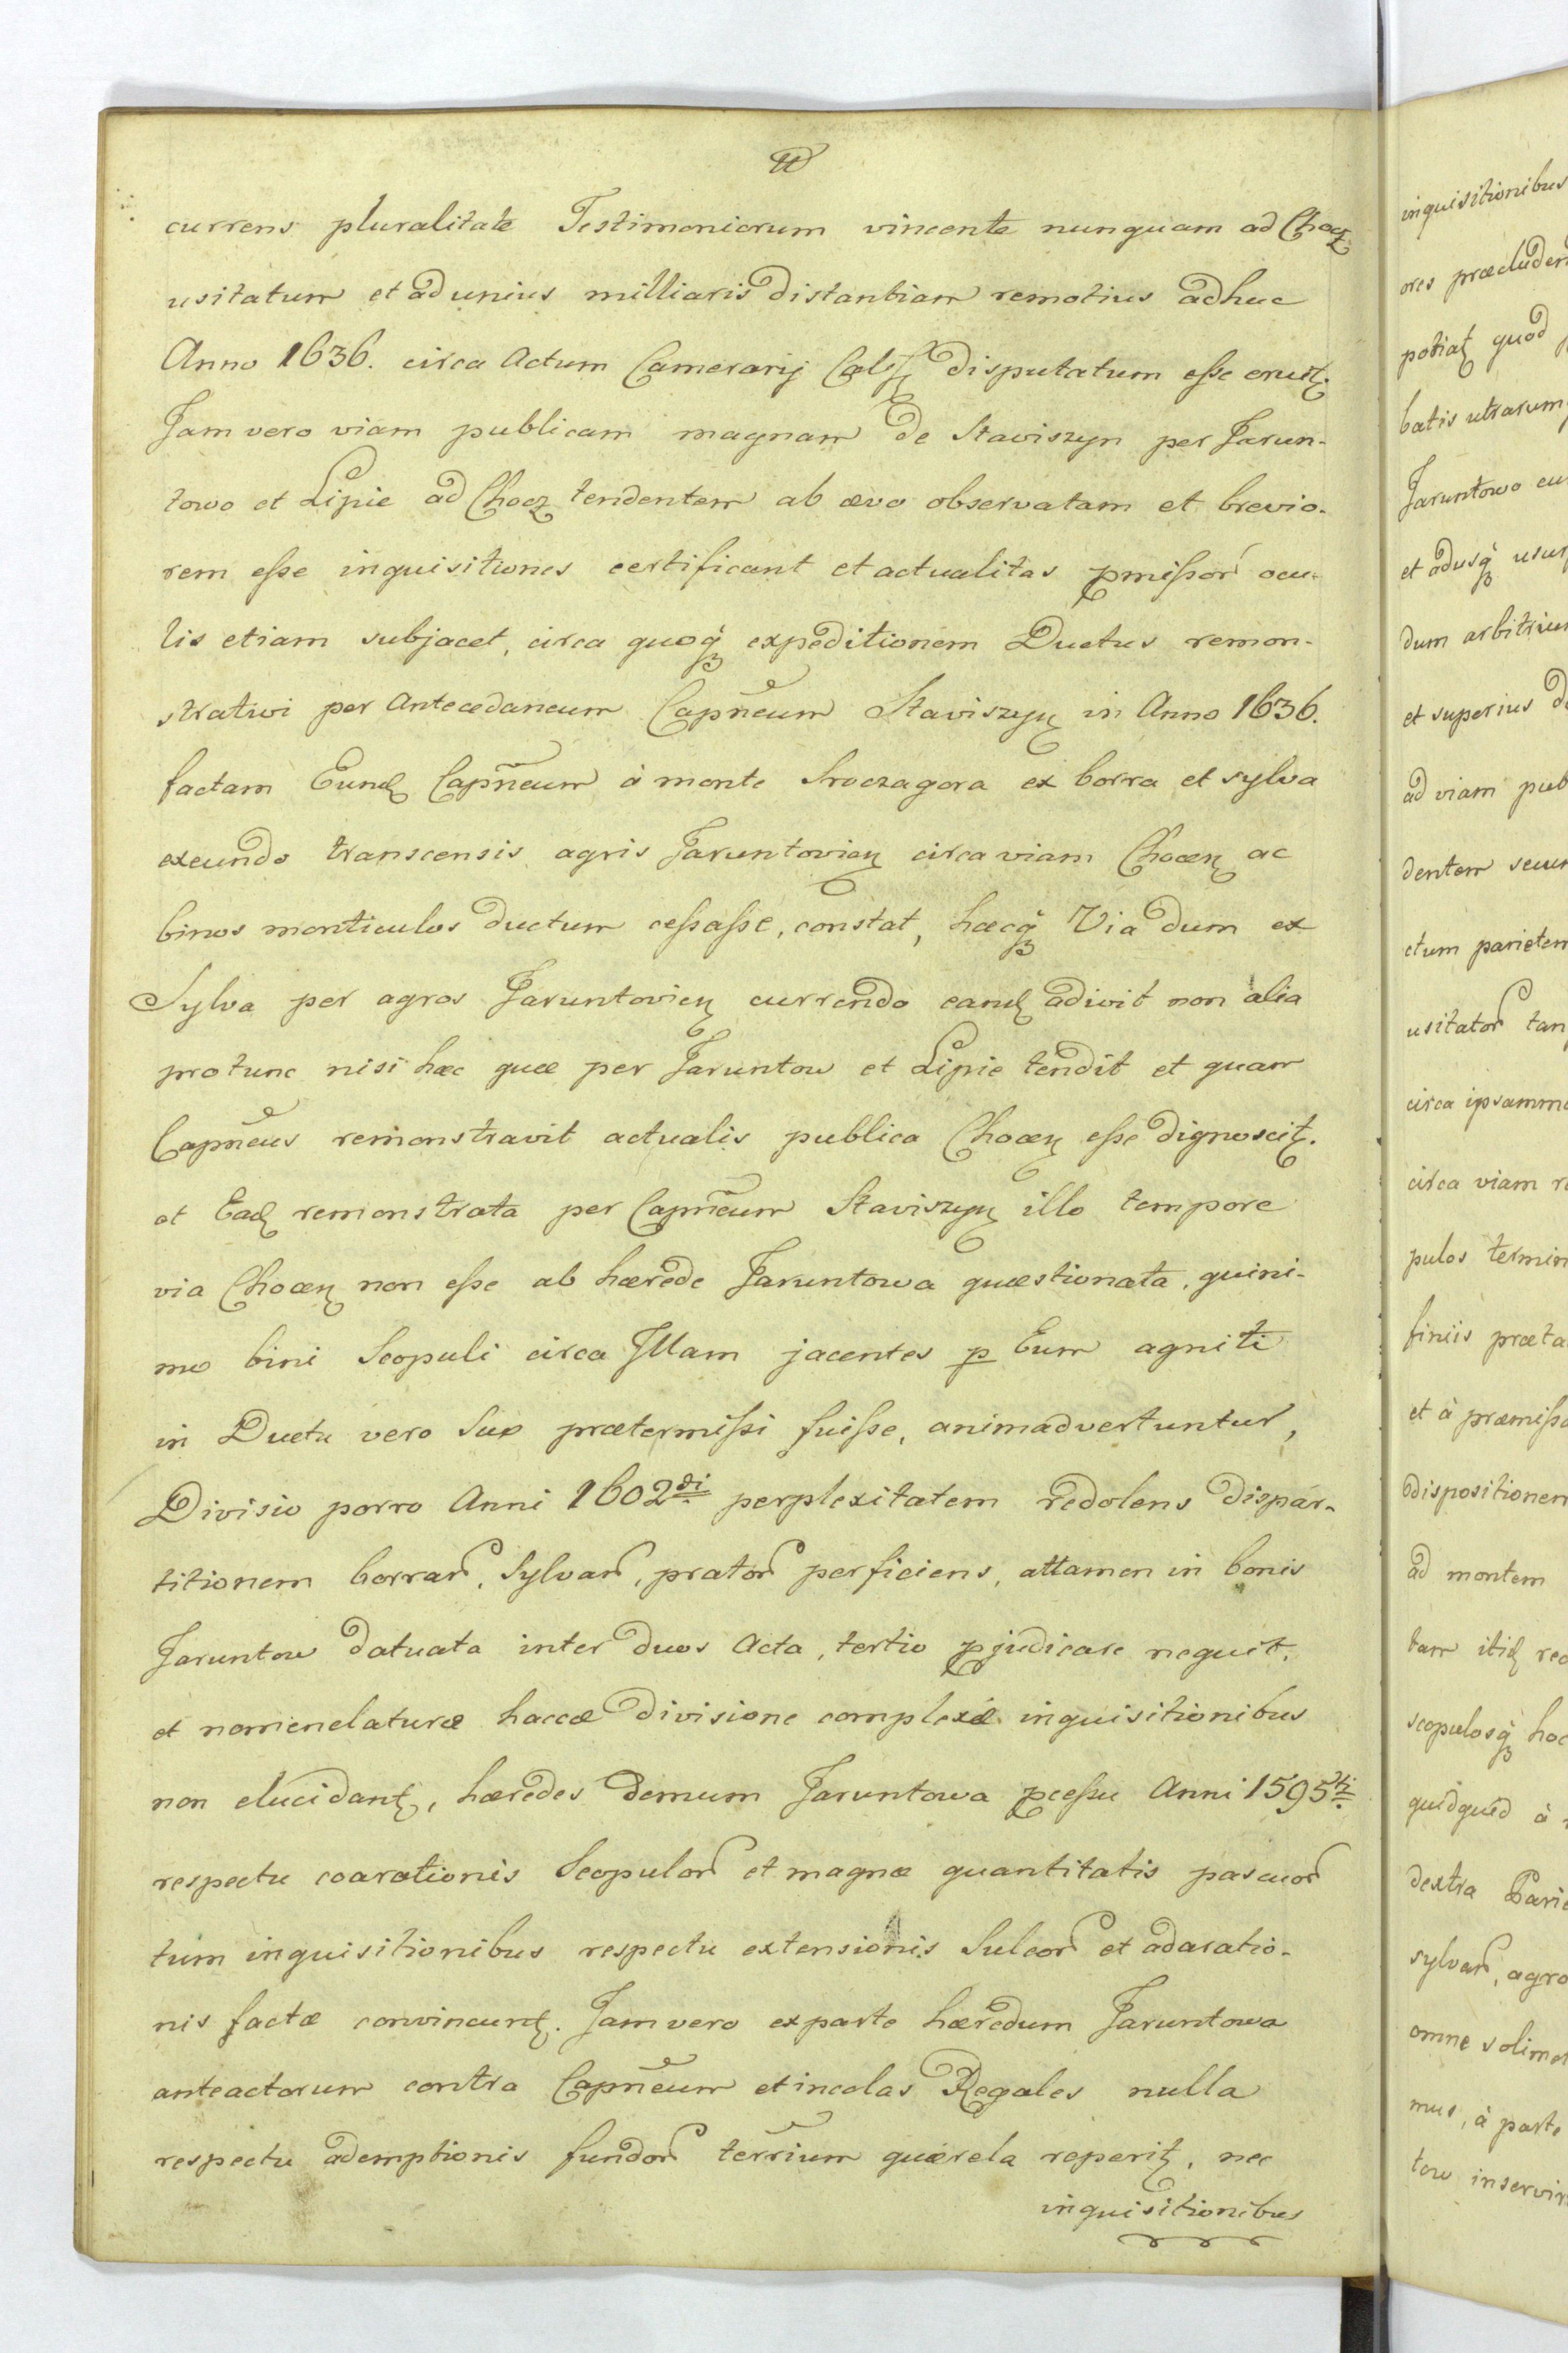 currens pluralitate Testimoniorum vincente nunquam ad Chocz
usitatum et ad unius milliaris distantiam remotius adhuc
Anno 1636. circa Actum Camerarij Calis disputatum esse eruit.
Jam vero viam publicam magnam de Staviszyn per Jarun-
towo et Lipie ad Chocz tendentem ab ævo observatam et brevio-
rem esse inquisitiones certificant et actualitas pmissor ocu-
lis etiam subjacet, circa quoq expeditionem Ductus remon-
strativi per Antecedaneum Capneum Staviszyn in Anno 1636.
factam Eund Capneum à monte Sroczagora ex borra et sylva
exeundo transcensis agris Jaruntovien circa viam Chocen ac
binos monticulos ductum cessasse, constat, hæcq Via dum ex
Sylva per agros Jaruntovien currendo eand adivit non alia
protunc nisi hæc quæ per Jaruntow et Lipie tendit et quam
Capneus remonstravit actualis publica Chocen esse dignoscit.
et Ead remonstrata per Capneum Staviszyn illo tempore
via Chocen non esse ab hærede Jaruntowa quæstionata, quini-
mo bini Scopuli circa Illam jacentes p Eum agniti
in Ductu vero Suo prætermissi fuisse, animadvertuntur,
Divisio porro Anni 1602di perplexitatem redolens dispar-
titionem borrar, Sylvar, prator perficiens, attamen in bonis
Jaruntow datuata inter duos Acta, tertio pjudicare nequit,
et nomenclaturæ haccæ divisione complexæ inquisitionibus
non elucidant, hæredes demum Jaruntowa pcessu Anni 1595ti
respectu coarationis Scopulor et magnæ quantitatis pascuor
tum inquisitionibus respectu extensionis Sulcor et adaratio-
nis factæ convincunt. Jam vero ex parte hæredum Jaruntowa
anteactorum contra Capneum et incolas Regales nulla
respectu ademptionis fundor terrium quærela reperit, nec
inquisitionibus
inquisitionibus
ores præcluden
potiat quod
batis utrarum
Jaruntowo
et adusq usur
dum arbitrium
et superius
ad viam pub
dentem secun
ctum parietem
usitator tan
circa ipsamme
circa viam
pulos termin
finiis præta
et à præmissa
dispositionem
ad montem
tam itid
scopulosq hoc
quidquid à
dextra Parie
sylvar, agro
omne solimo
mus, à parte
tow inservir